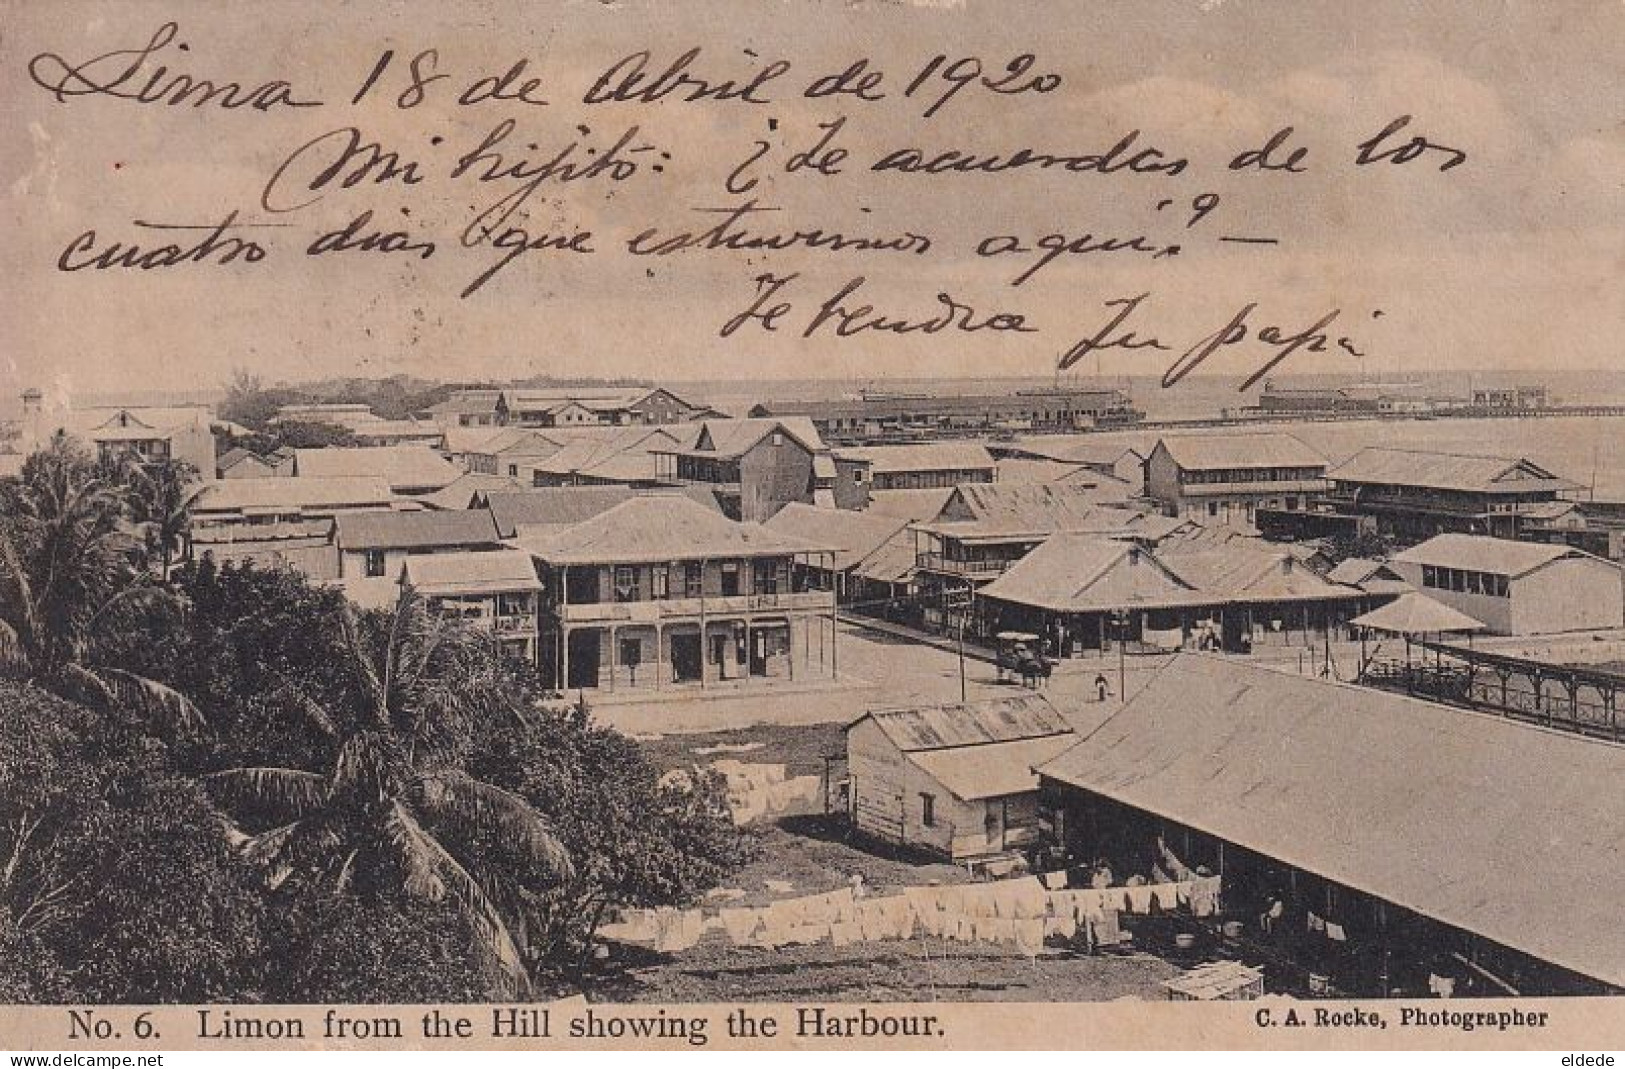 Lima 18 de Abril de 1920
Mi hijito: ¿Te acuerdas de los
cuatro dias que estuvimos aquí? —
Te bendice Tu papá
No. 6. Limon from the Hill showing the Harbour.
C. A. Rocke, Photographer
eldede